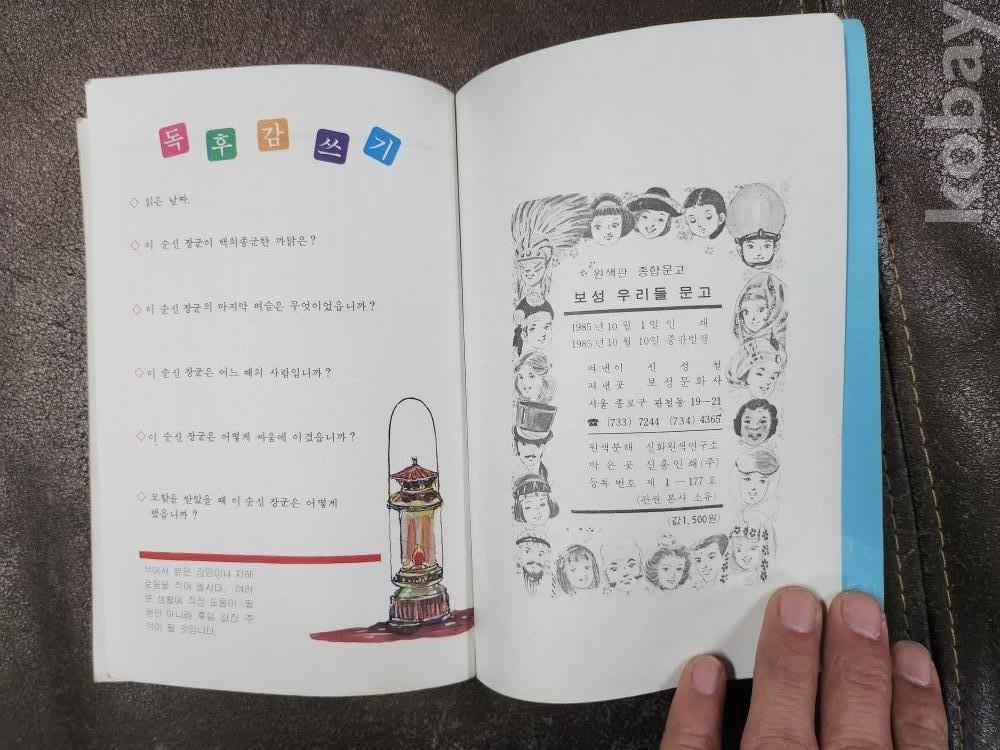 독후감쓰기
◇ 읽은 날짜.
◇ 이 순신 장군이 백의종군한 까닭은?
◇ 이 순신 장군의 마지막 벼슬은 무엇이었읍니까?
◇ 이 순신 장군은 어느 때의 사람입니까?
◇ 이 순신 장군은 어떻게 싸움에 이겼읍니까?
◇ 모함을 받았을 때 이 순신 장군은 어떻게
했읍니까?
책에서 받은 감명이나 지혜
로움을 적어 봅시다. 여러
분 생활에 직접 도움이 될
뿐만 아니라 후일 값진 추
억이 될 것입니다.
원색판 종합문고
보성 우리들 문고
1985년 10월 1일 인 쇄
1985년 10월 10일 중판발행
펴낸이 신성철
펴낸곳 보성문화사
서울 종로구 관철동 19-21
☎ (733) 7244 (734) 4365
원색분해 신화원색연구소
박은곳 신흥인쇄(주)
등록번호 제 1-177호
(판권 본사 소유)
(값1,500원)
kobay